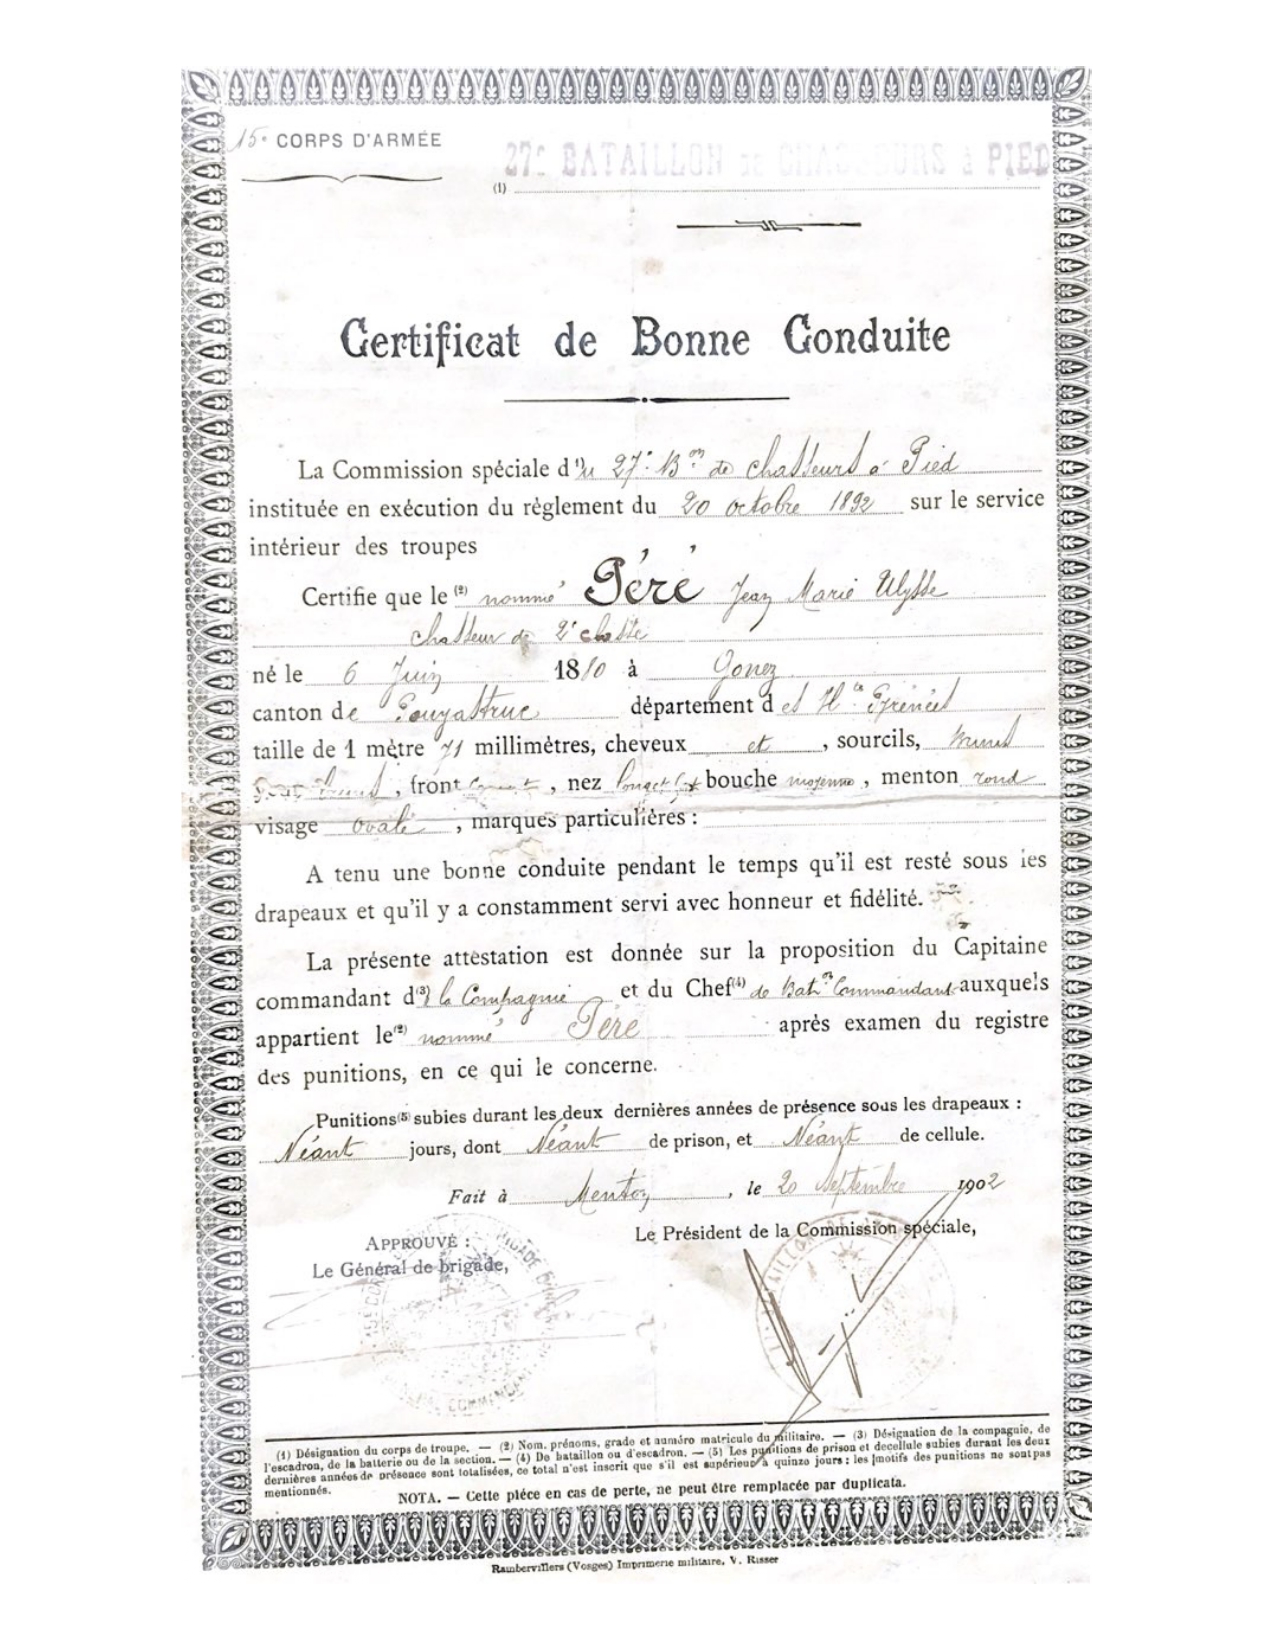 15e CORPS D'ARMÉE
27e BATAILLON DE CHASSEURS à PIED
(1)
Certificat de Bonne Conduite
La Commission spéciale du 27e Bon de Chasseurs à Pied
instituée en exécution du règlement du 20 octobre 1892 sur le service
intérieur des troupes
Certifie que le (2) nommé Péré Jean Marie Ulysse
chasseur de 2e classe
né le 6 Juin 1880 à Gonez
canton de Pouyastruc département des Htes Pyrénées
taille de 1 mètre 71 millimètres, cheveux et, sourcils, bruns
, front, nez bouche moyenne, menton rond
visage ovale, marques particulières :
A tenu une bonne conduite pendant le temps qu'il est resté sous les
drapeaux et qu'il y a constamment servi avec honneur et fidélité.
La présente attestation est donnée sur la proposition du Capitaine
commandant d(3) la Compagnie et du Chef(4) de Baton Commandant auxquels
appartient le(2) nommé Péré après examen du registre
des punitions, en ce qui le concerne.
Punitions(5) subies durant les deux dernières années de présence sous les drapeaux :
Néant jours, dont Néant de prison, et Néant de cellule.
Fait à Menton, le 20 Septembre 1902
Le Président de la Commission spéciale,
APPROUVÉ :
Le Général de brigade,
(1) Désignation du corps de troupe. — (2) Nom, prénoms, grade et numéro matricule du militaire. — (3) Désignation de la compagnie, de
l'escadron, de la batterie ou de la section. — (4) De bataillon ou d'escadron. — (5) Les punitions de prison et decellule subies durant les deux
dernières années de présence sont totalisées, ce total n'est inscrit que s'il est supérieur à quinze jours : les motifs des punitions ne sont pas
mentionnés.
NOTA. — Cette pièce en cas de perte, ne peut être remplacée par duplicata.
Rambervillers (Vosges) Imprimerie militaire, V. Risser